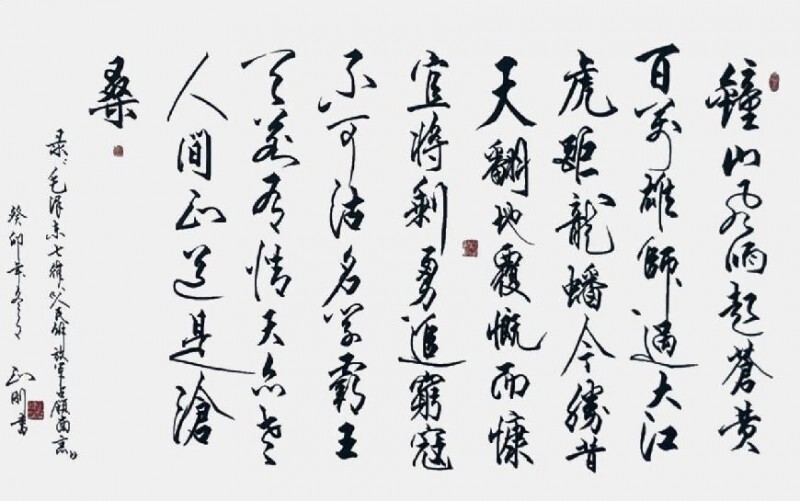 鐘山風雨起蒼黄
百萬雄師過大江
虎距龍蟠今勝昔
天翻地覆慨而慷
宜將剩勇追窮寇
不可沽名学霸王
天若有情天亦老
人間正道是滄
桑
录毛泽东七律人民解放军占領南京
癸卯年冬月 正明書